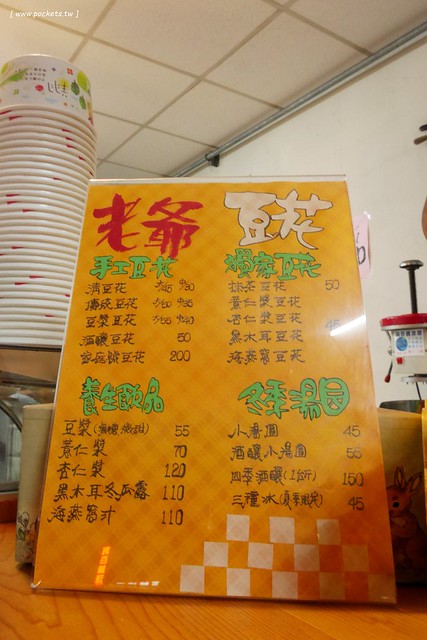 [ www.pockets.tw ]
老爺 豆花
手工豆花
清豆花
傳統豆花
豆漿豆花
酒釀豆花 50
家庭號豆花 200
獨家豆花
抹茶豆花 50
薏仁漿豆花
杏仁漿豆花 45
黑木耳豆花
海燕窩豆花
養生飲品
豆漿 55
薏仁漿 70
杏仁漿 120
黑木耳冬瓜露 110
海燕窩汁 110
冬季湯圓
小湯圓 45
酒釀小湯圓 55
四季酒釀(1台斤) 150
三種冰 45